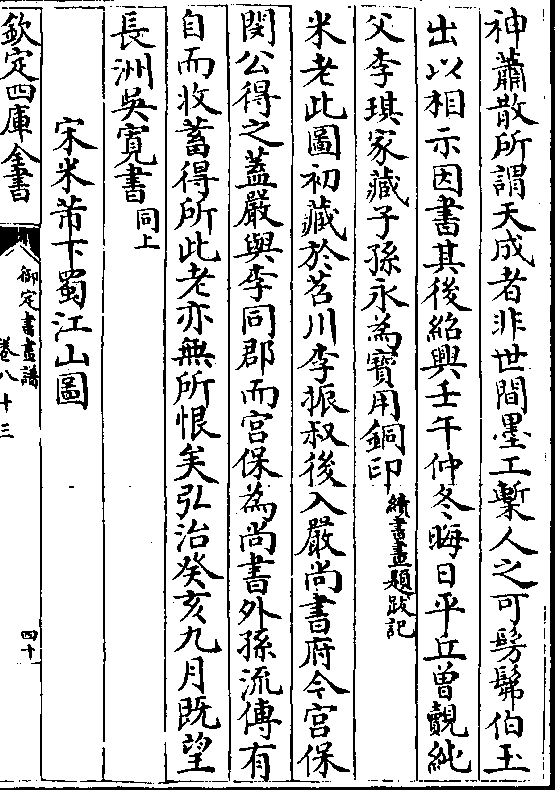 神蕭散所謂天成者非世間墨工槧人之可髣髴伯玉
出以相示因書其後紹興壬午仲冬晦日平丘曾覿純
父李琪家藏子孫永為寳用銅印續書畫題跋記
米老此圖初藏於苕川李振叔後入嚴尚書府今宫保
閔公得之蓋嚴與李同郡而宫保為尚書外孫流傳有
自而收蓄得所此老亦無所恨矣弘治癸亥九月既望
長洲吳寛書同上
宋米芾下蜀江山圖
欽定四庫全書
御定書畫譜
卷八十三
四十